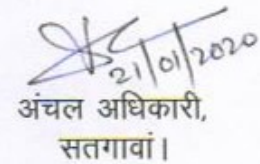 21/01/2020
अंचल अधिकारी,
सतगावां।